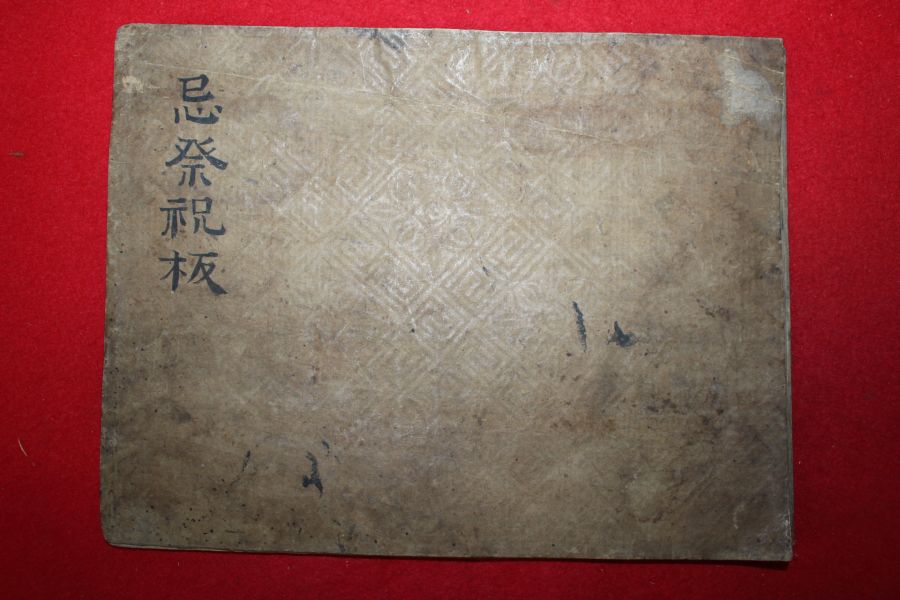 忌祭祝板